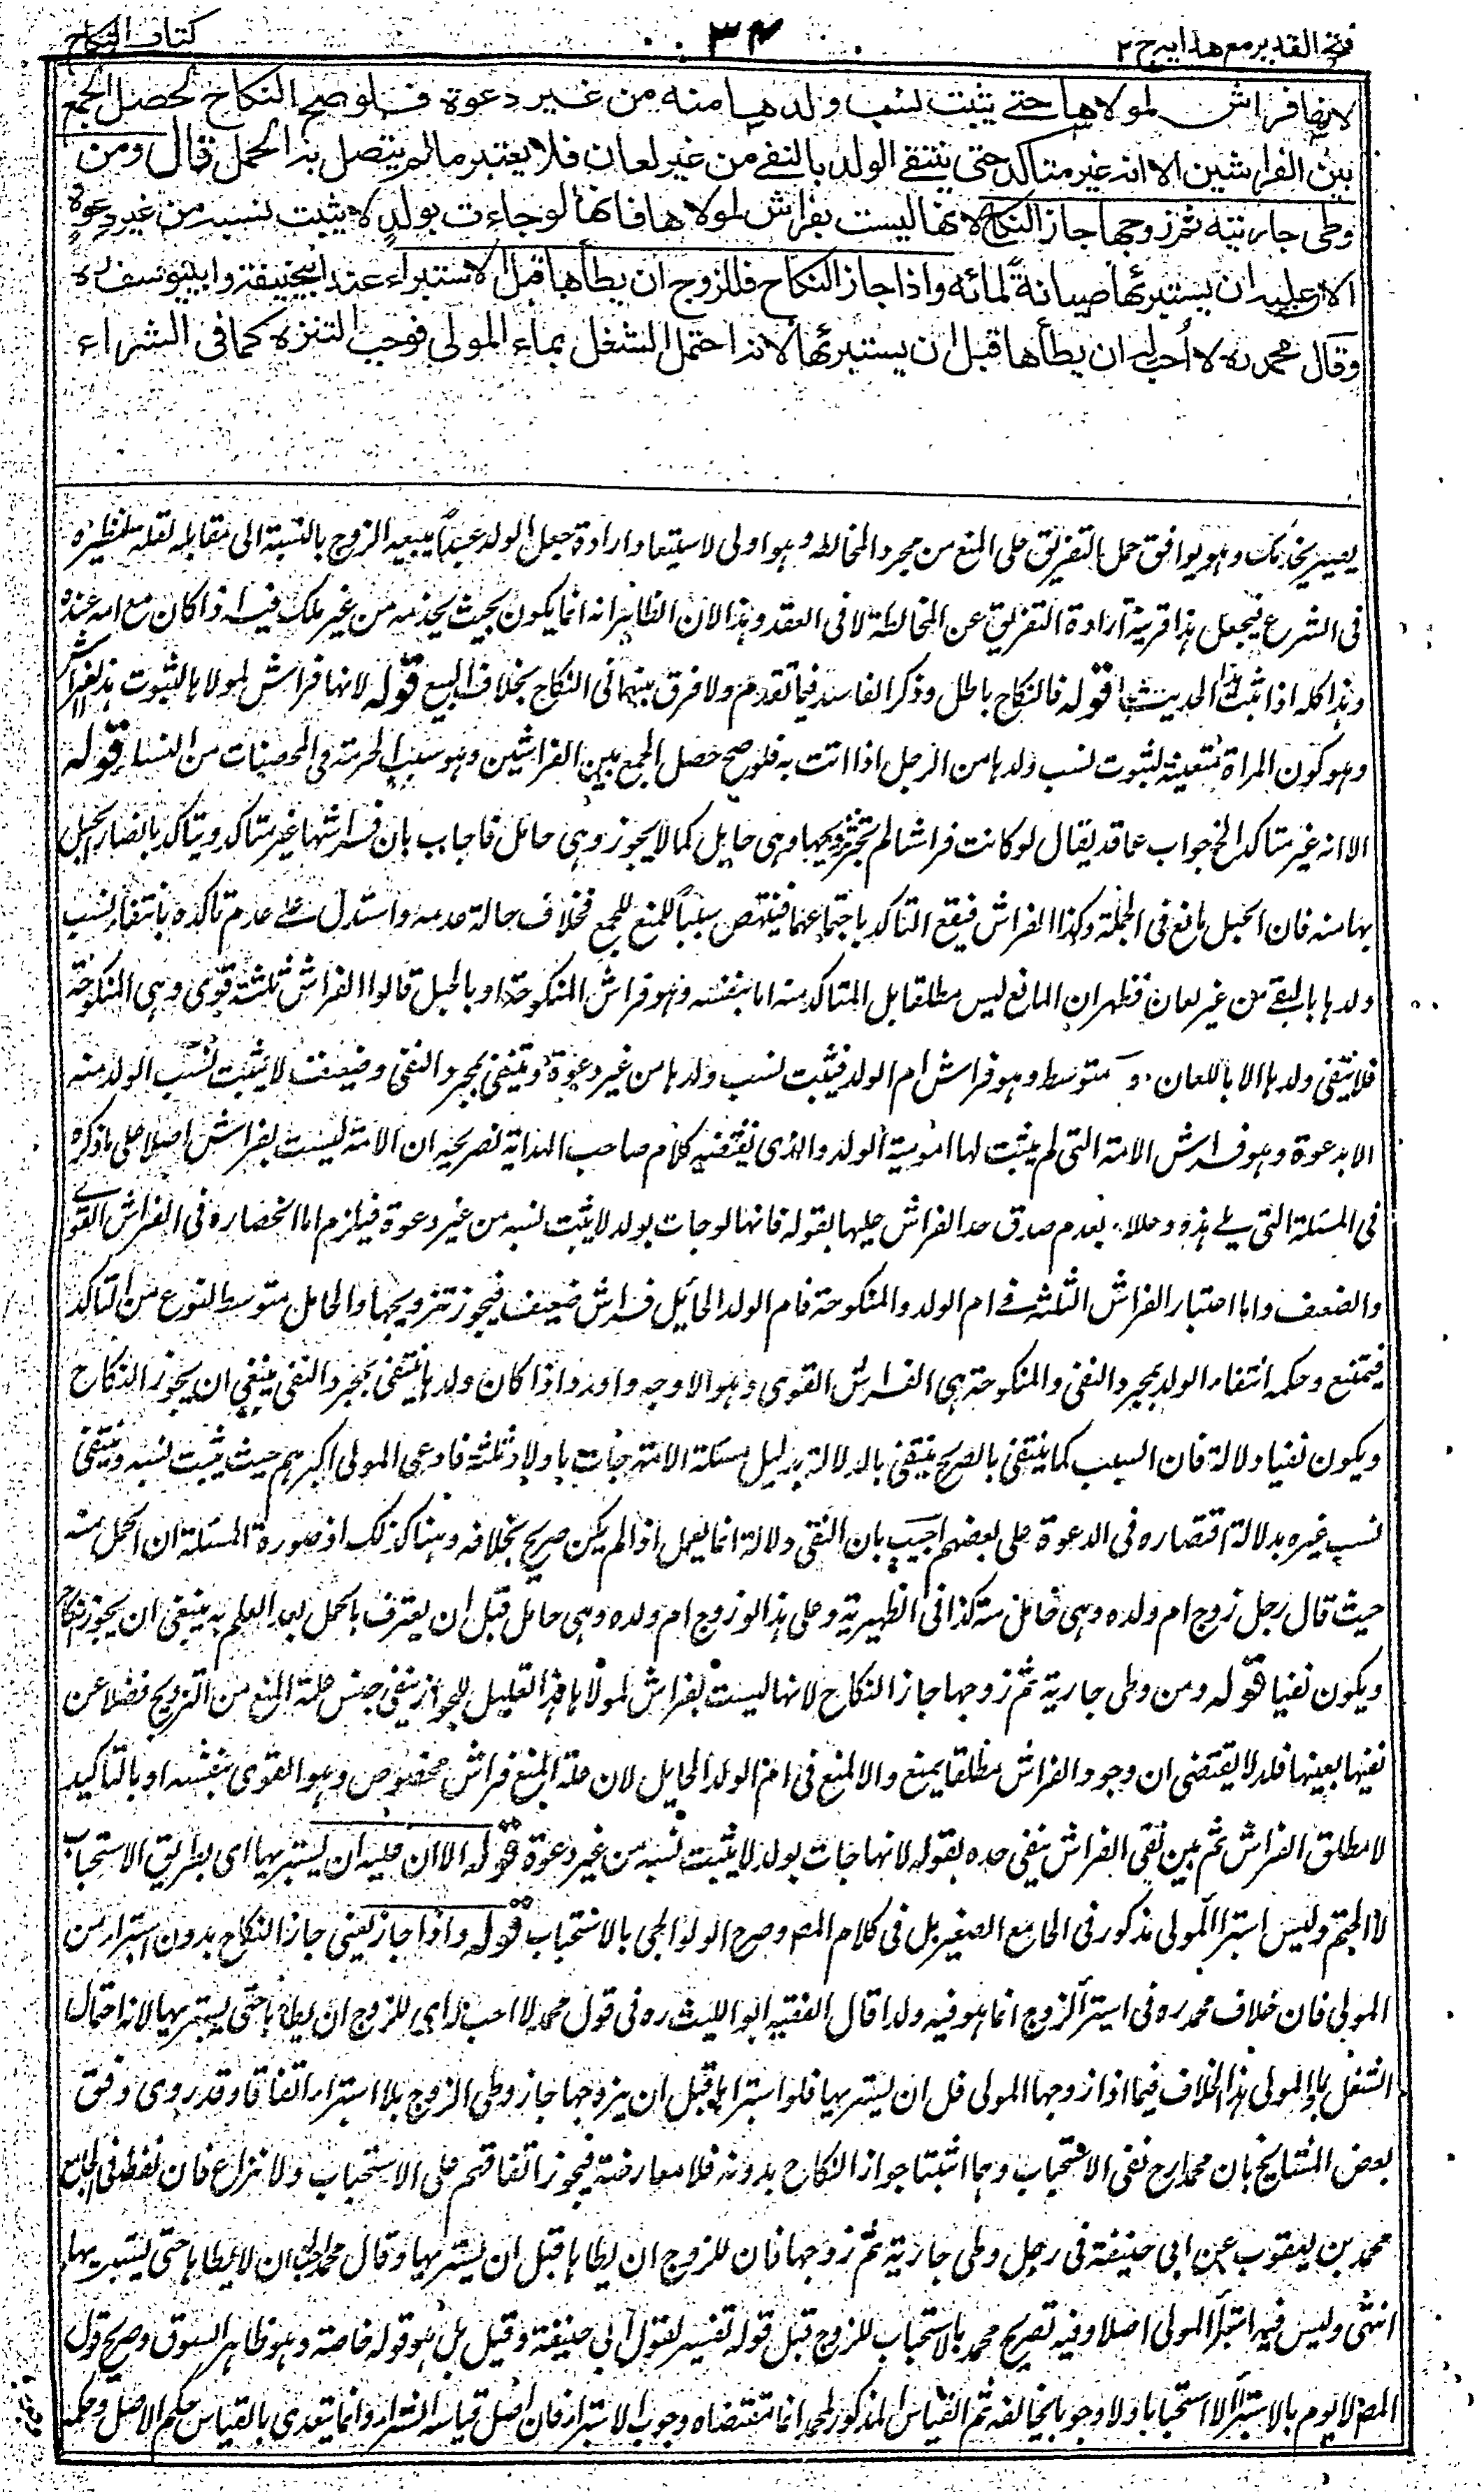 فتح القدير مع هدايه ج ٢
٣٤
كتاب النكاح
لانها فراش لمولاها حتى يثبت نسب ولدها منه من غير دعوة فلو صح النكاح لحصل الجمع
بين الفراشين الا انه غير متاكد حتى ينتفي الولد بالنفي من غير لعان فلا يعتبر مالم يتصل به الحمل قال ومن
وطى جاريته ثم زوجها جاز النكاح لانها ليست بفراش لمولاها فانها لو جاءت بولد لا يثبت نسبه من غير دعوة
الا ان عليه ان يستبرئها صيانة لمائه واذا جاز النكاح فللزوج ان يطأها قبل الاستبراء عند ابيحنيفة وابييوسف ره
وقال محمد ره لا أحب له ان يطأها قبل ان يستبرئها لانه احتمل الشغل بماء المولى فوجب التنزه كما في الشراء
يصير يخدمك وهو يوافق حمل بالتفريق على المنع من مجرد المخالطة وهو اولى لاستبعاد ارادة جعل الولد عبدا يبيعه الزوج بالنسبة الى مقابله لقلة نظيره
فى الشرع فيجعل هذا قرينة ارادة التفريق عن المخالطة لا فى العقد وهذا لان الظاهر انه انما يكون بحيث يخدمه من غير ملك فيه اذا كان مع امه عنده
وهذا كله اذا ثبت هذا الحديث قوله فالنكاح باطل وذكر الفاسد فيما تقدم ولا فرق بينهما فى النكاح بخلاف البيع قوله لانها فراش لمولاها لثبوت حد الفراش
وهو كون المراة متعينة لثبوت نسب ولدها من الرجل اذا اتت به فلو صح حصل الجمع بين الفراشين وهو سبب الحرمة فى المحصنات من النساء قوله
الا انه غير متاكد الخ جواب عما قد يقال لو كانت فراشا لم يجز تزويجها وهى حايل كما لا يجوز وهى حامل فاجاب بان فراشها غير متاكد ويتاكد باتصار الحبل
بها منه فان الحبل مانع فى الجملة وكذا الفراش فيقع التاكد باجتماعهما فينتهض سببا للمنع للجمع بخلاف حالة عدمه واستدل على عدم تاكده بانتفاء نسب
ولدها بالنفى من غير لعان فظهر ان المانع ليس مطلقا بل المتاكد منه اما بنفسه وهو فراش المنكوحة او بالحبل قالوا الفراش ثلثة قوى وهى المنكوحة
فلا ينتفى ولدها الا باللعان و متوسط وهو فراش ام الولد فيثبت نسب ولدها من غير دعوة وينتفى بمجرد النفى وضعيف لا يثبت نسب الولد منه
الا بدعوة وهو فراش الامة التى لم يثبت لها امومية الولد والذى يقتضيه كلام صاحب الهداية تصريحه ان الامة ليست بفراش اصلا على ما ذكره
فى المسئلة التى يلى هذه وعللا بعدم صدق حد الفراش عليها بقوله فانها لو جات بولد لا يثبت نسبه من غير دعوة فيلزم اما انحصاره فى الفراش القوى
والضعيف واما اعتبار الفراش الثلثة فى ام الولد والمنكوحة فام الولد الحايل فراش ضعيف فيجوز تزويجها والحامل متوسط لنوع من التاكد
فيمتنع وحكمه انتفاء الولد بمجرد النفى والمنكوحة هى الفراش القوى وهو الاوجه واورد اذا كان ولدها ينتفى بمجرد النفى ينبغى ان يجوز النكاح
ويكون نفيا دلالة فان السبب كما ينتفى بالصريح ينتفى بالدلالة بدليل مسئلة الامة جات باولاد ثلثة فادعى المولى اكبرهم حيث يثبت نسبه وينتفى
نسب غيره بدلالة اقتصاره فى الدعوة على بعضهم اجيب بان النفى دلالة انما يعمل اذا لم يكن صريح بخلافه وهنا كذلك اذ صورة المسئلة ان الحمل منه
حيث قال رجل زوج ام ولده وهى حامل منه كذا فى الظهيرية وعلى هذا لو زوج ام ولده وهى حامل قبل ان يعترف بالحمل بعد العلم به ينبغى ان يجوز النكاح
ويكون نفيا قوله ومن وطى جارية ثم زوجها جاز النكاح لانها ليست بفراش لمولاها هذا التعليل للجواز ينفى جنس علة المنع من التزويج فضلا عن
نفيها بعينها فلا يقتضى ان وجود الفراش مطلقا يمنع والا لمنع فى ام الولد الحايل لان علة المنع فراش مخصوص وهو القوى بنفسه او بالتاكيد
لا مطلق الفراش ثم بين نفى الفراش بنفى حده بقوله لانها جات بولد لا يثبت نسبه من غير دعوة قوله الا ان عليه ان يستبريها اى بطريق الاستحباب
لا الحتم وليس استبراء المولى مذكور فى الجامع الصغير بل فى كلام المص وصرح الولوالجى بالاستحباب قوله واذا جاز يعنى جاز النكاح بدون استبراء من
المولى فان خلاف محمد ره فى استبراء الزوج انما هو فيه ولذا قال الفقيه ابو الليث ره فى قول محمد لا احب له اى للزوج ان يطاها حتى يستبريها لانه احتمال
الشغل بماء المولى هذا الخلاف فيما اذا زوجها المولى قبل ان يستبريها فلو استبراها قبل ان يزوجها جاز وطى الزوج بلا استبراء اتفاقا وقد روى وفق
بعض المشايخ بان محمدا رح نفى الاستحباب وهما اثبتا جواز النكاح بدونه فلا معارضة فيجوز اتفاقهم على الاستحباب ولا نزاع فان لفظه فى الجامع
محمد بن يعقوب عن ابى حنيفة فى رجل وطى جارية ثم زوجها فان للزوج ان يطاها قبل ان يستبريها وقال محمد احب ان لا يطاها حتى يستبريها
انتهى وليس فيه استبراء المولى اصلا وفيه تصريح محمد بالاستحباب للزوج قيل قوله تفسير لقول ابى حنيفة وقيل بل هو قوله خاصة وهو ظاهر السوق وصريح قول
المص لا يوم بالاستبراء لا استحبابا ولا وجوبا يخالفه ثم القياس المذكور لمحمد انما مقتضاه وجوب الاستبراء فان اصل قياسه الشراء وانما يتعدى بالقياس حكم الاصل وحكم